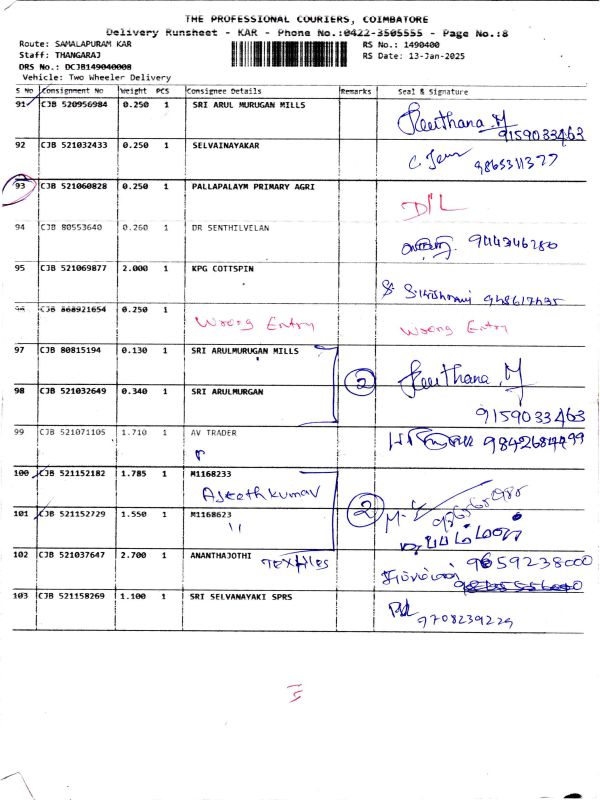 THE PROFESSIONAL COURIERS, COIMBATORE
Delivery Runsheet - KAR - Phone No.:0422-3505555 - Page No.:8
Route: SAMALAPURAM KAR RS No.: 1490400
Staff: THANGARAJ RS Date: 13-Jan-2025
DRS No.: DCJB149040008
Vehicle: Two Wheeler Delivery
S No Consignment No Weight PCS Consignee Details Remarks Seal & Signature
91 CJB 520956984 0.250 1 SRI ARUL MURUGAN MILLS Keerthana.M
9159033463
92 CJB 521032433 0.250 1 SELVAINAYAKAR
9865311377
93 CJB 521060828 0.250 1 PALLAPALAYM PRIMARY AGRI
D/L
94 CJB 80553640 0.260 1 DR SENTHILVELAN
95 CJB 521069877 2.000 1 KPG COTTSPIN
CJB 868921654 0.250 1
Wrong Entry Wrong Entry
97 CJB 80815194 0.130 1 SRI ARULMURUGAN MILLS
2 Keerthana.M
98 CJB 521032649 0.340 1 SRI ARULMURGAN
9159033463
99 CJB 521071105 1.710 1 AV TRADER
100 CJB 521152182 1.785 1 M1168233
Ajeethkumar 2
101 CJB 521152729 1.550 1 M1168623
"
102 CJB 521037647 2.700 1 ANANTHAJOTHI Textiles 9659238000
103 CJB 521158269 1.100 1 SRI SELVANAYAKI SPRS
9708239229